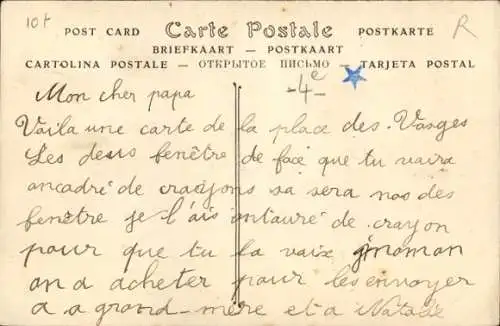 10f
R
POST CARD Carte Postale POSTKARTE
BRIEFKAART — POSTKAART
CARTOLINA POSTALE — ОТКРЫТОЕ ПИСЬМО — TARJETA POSTAL
-4e-
Mon cher papa
Vaila une carte de la place des. Vasges
Les deus fenêtre de face que tu vaira
ancadré de crayons sa sera nos des
fenetre je l'ais antauré de crayon
pour que tu la vaix moman
on a acheter pour les envoyer
a a grand-mère et a